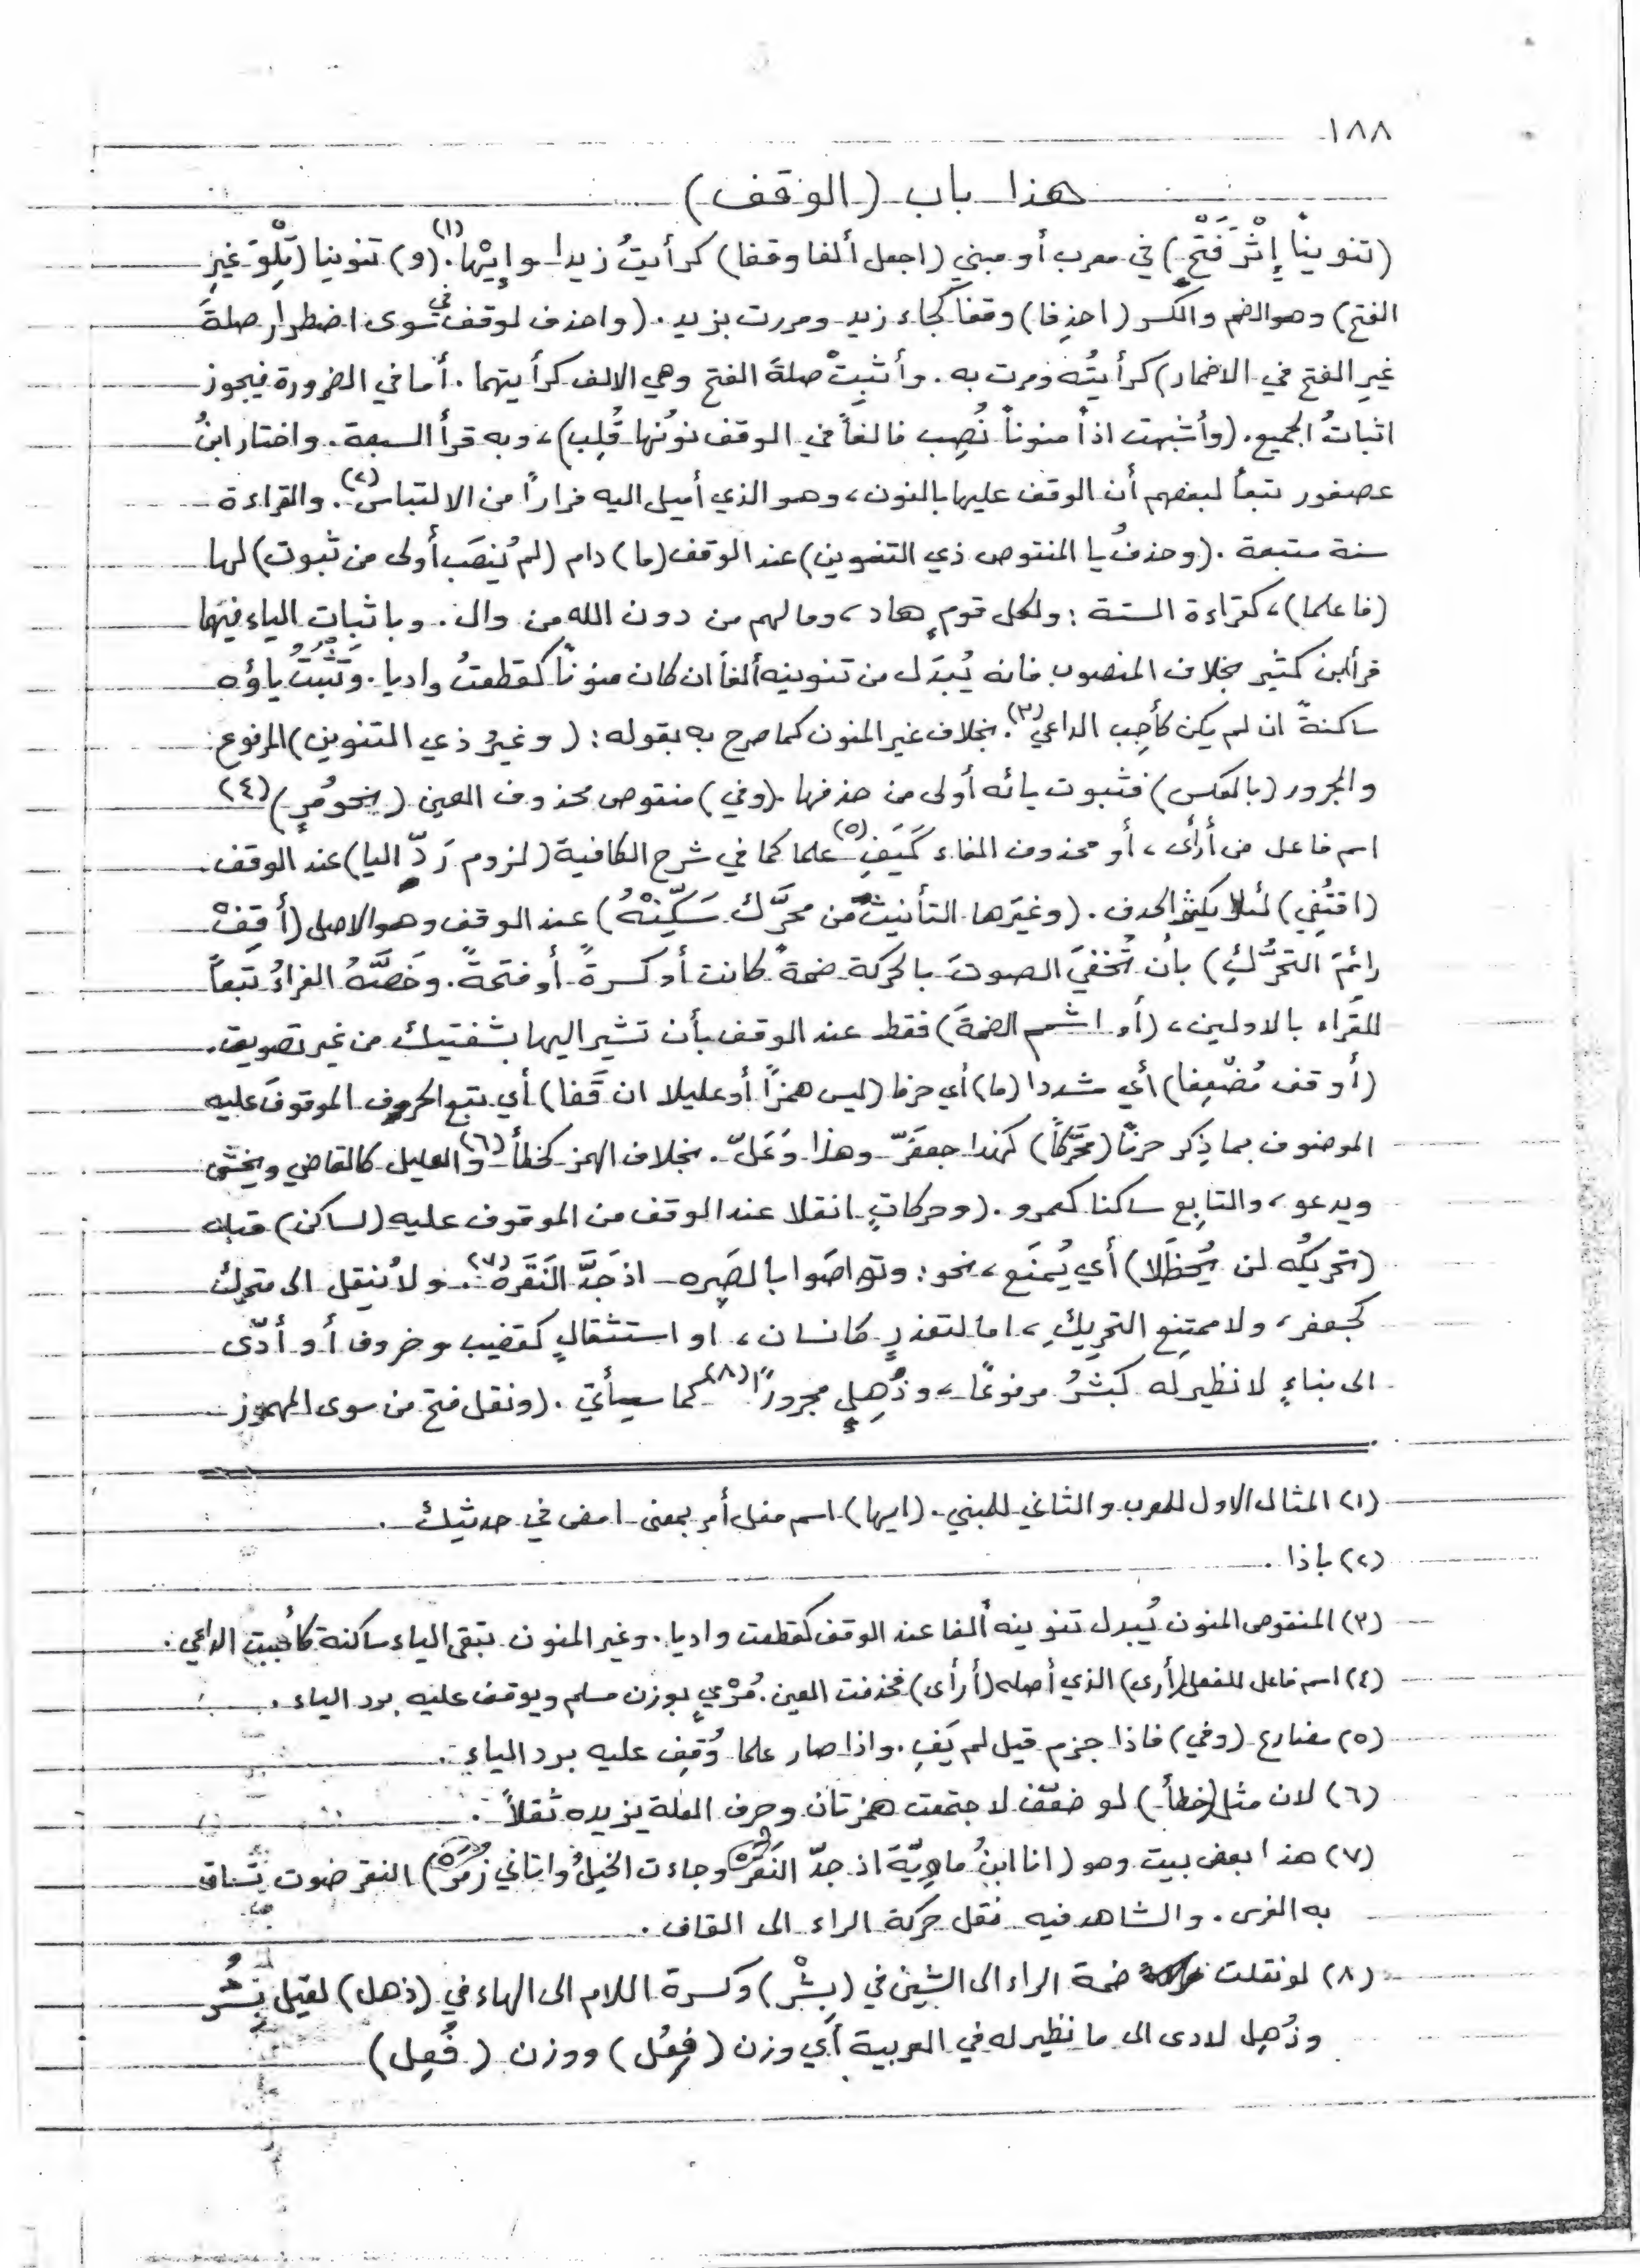 ١٨٨
هذا باب (الوقف)
(تنويناً إِثْرَ فَتْحٍ) في معرب أو مبني (اجعل ألفا وقفا) كرأيتُ زيدا وإِيْها.(١) (و) تنوينا (تِلْوَ غيرِ
الفتح) وهو الضم والكسر (احذِفا) وقفا كجاء زيد ومررت بزيد. (واحذف لوقف في سوى اضطرار صلةَ
غيرِ الفتح في الاضمار) كرأيتُه ومرت به. وأثبِتْ صلةَ الفتح وهي الالف كرأيتها. أما في الضرورة فيجوز
اثباتُ الجميع. (وأشبهت اذاً منوناً نُصِب فالفاً في الوقف نونُها قُلِب)، وبه قرأ السبعة. واختار ابنُ
عصفور تبعاً لبعضهم أن الوقف عليها بالنون، وهو الذي أميل اليه فراراً من الالتباس(٢). والقراءة
سنة متبعة. (وحذفُ يا المنقوص ذي التنوين) عند الوقف (ما) دام (لم يُنصَب أولى من ثبوت) لها
(فاعلما)، كقراءة الستة: ولكل قومٍ هاد، وما لهم من دون الله من وال. وباثبات الياء فيهما
قرأ ابن كثير بخلاف المنصوب فانه يُبدَل من تنوينه ألفاً ان كان منوناً كقطعتُ واديا. وتَثْبُتُ ياؤه
ساكنةً ان لم يكن كأجِب الداعي(٣). بخلاف غير المنون كما صرح به بقوله: (وغيرُ ذي التنوين) المرفوع
والمجرور (بالعكس) فثبوت يائه أولى من حذفها. (وفي) منقوص محذوف العين (نحو مُرٍ)(٤)
اسم فاعل من أرأى، أو محذوف الفاء كَيَفِ(٥) علما كما في شرح الكافية (لزوم رَدِّ اليا) عند الوقف
(اقتُفِي) لئلا يكثر الحذف. (وغيرَها التأنيث من محرَّك سَكِّنْهُ) عند الوقف وهو الاصل (أو قِفْ
رائمَ التحرُّكِ) بأن تُخفيَ الصوتَ بالحركة ضمةً كانت أو كسرةً أو فتحةً. وخَصَّهُ الفراءُ تَبَعاً
للقراء بالاولين، (أو اشمم الضمةَ) فقط عند الوقف بأن تشير اليها بشفتيك من غير تصويت.
(أو قف مُضْعِفا) أي مشددا (ما) أي حرفا (ليس همزاً أو عليلا ان قَفا) أي تبع الحروف الموقوفَ عليه
الموصوف بما ذِكر حرفاً (محَرَّكاً) كهذا جعفَرّ وهذا وَعَلّ. بخلاف الهمز كخطأ(٦) والعليل كالقاضي ويخشى
ويدعو، والتابِع ساكنا كعمرو. (وحركاتٍ انقلا عند الوقف من الموقوف عليه (لساكن) قبله
(تحريكُه لن يُحظَلا) أي يُمنَع، نحو: وتواصَوا بالصَبِره – اذ جَدَّ النَقَره(٧). ولا تُنقل الى متحرك
كجعفر، ولا ممتنِع التحريكِ، اما لتعذرٍ كانسان، او استثقالٍ كقضيب وخروف أو أدّى
الى بناءٍ لا نظير له كبشرُ مرفوعًا، وذُهِلٍ مجرورًا(٨) كما سيأتي. (ونقل فتح من سوى المهموز
(١) المثال الاول للمعرب والثاني للمبني. (ايها) اسم فعل أمر بمعنى امض في حديثك.
(٢) باذا.
(٣) المنقوص المنون يُبدل تنوينه ألفا عند الوقف كقطعت واديا. وغير المنون تبقى الياء ساكنة كأجبت الداعي.
(٤) اسم فاعل للفعل (أرى) الذي أصله (أرأى) فحذفت العين. مُرْيٍ بوزن مسلم ويوقف عليه برد الياء.
(٥) مضارع (وفي) فاذا جزم قيل لم يَفِ. واذا صار علما وُقِف عليه برد الياء.
(٦) لان مثل (خطأ) لو ضعّف لاجتمعت همزتان وحرف العلة يزيده ثقلاً.
(٧) هذا بعض بيت وهو (انا ابنُ ماوِيّة اذ جدّ النَقَره وجاءت الخيلُ واثاني زُمَره) النقر صوت تساق
به الفرس. والشاهد فيه نقل حركة الراء الى القاف.
(٨) لو نقلت ضمة الراء الى الشين في (بِشْر) وكسرة اللام الى الهاء في (ذهل) لقيل بِشُر
وذُهِل لادى الى ما نظير له في العربية أي وزن (فِعُل) ووزن (فُعِل)